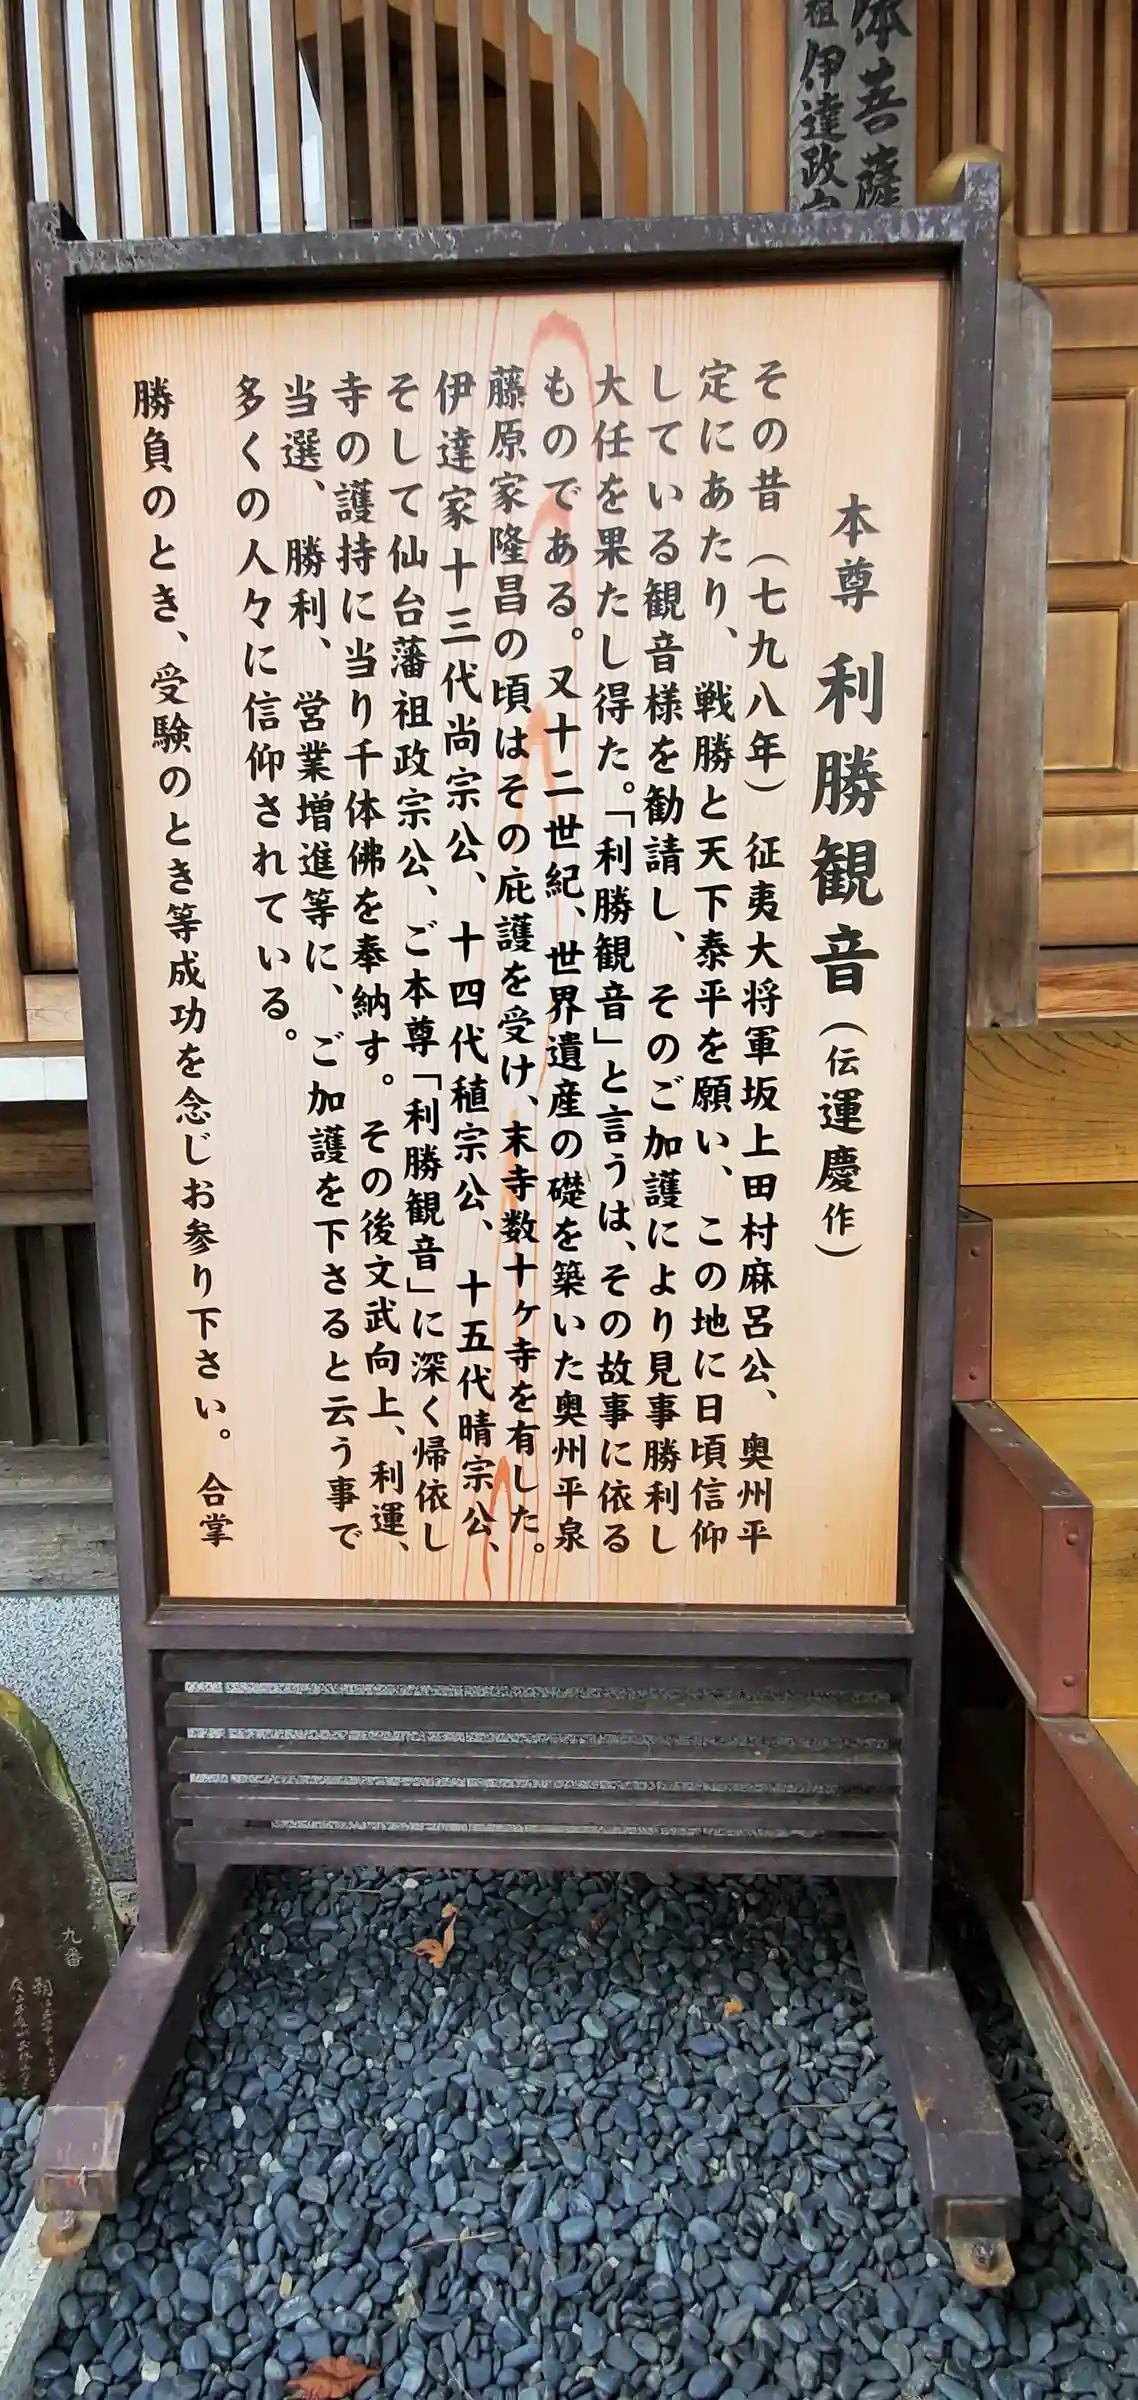 本尊 利勝観音（伝運慶作）
その昔（七九八年）征夷大将軍坂上田村麻呂公、奥州平
定にあたり、戦勝と天下泰平を願い、この地に日頃信仰
している観音様を勧請し、そのご加護により見事勝利し
大任を果たし得た。「利勝観音」と言うは、その故事に依る
ものである。又十二世紀、世界遺産の礎を築いた奥州平泉
藤原家隆昌の頃はその庇護を受け、末寺数十ヶ寺を有した。
伊達家十三代尚宗公、十四代稙宗公、十五代晴宗公、
そして仙台藩祖政宗公、ご本尊「利勝観音」に深く帰依し
寺の護持に当り千体佛を奉納す。その後文武向上、利運、
当選、勝利、営業増進等に、ご加護を下さると云う事で
多くの人々に信仰されている。
勝負のとき、受験のとき等成功を念じお参り下さい。合掌
体菩薩
祖伊達政
九番